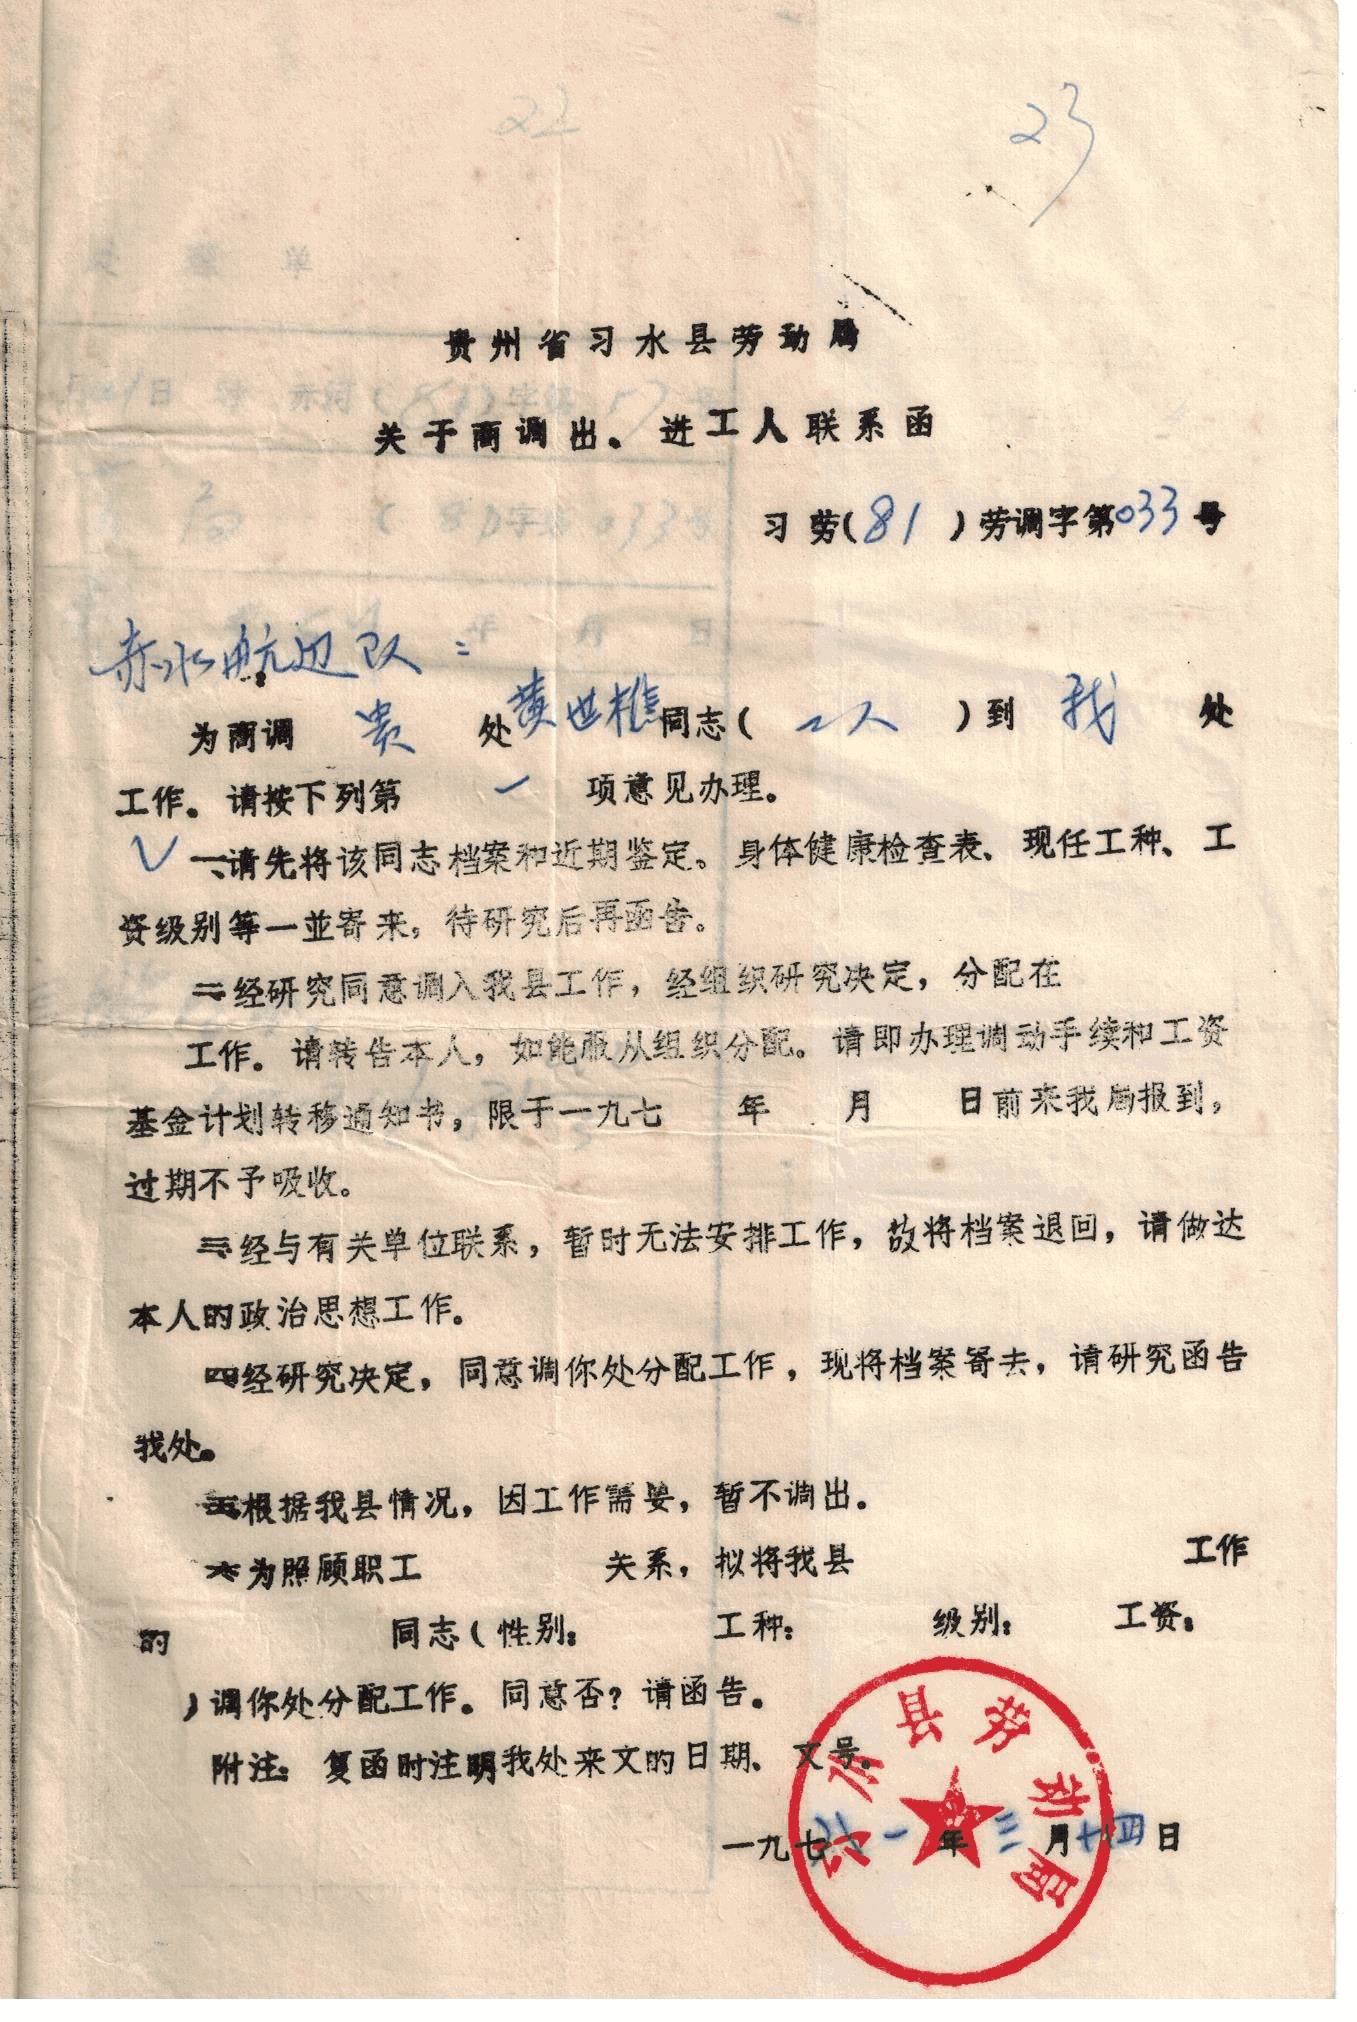 22
23
贵州省习水县劳动局
关于商调出、进工人联系函
习劳(81)劳调字第033号
赤水航运队:
为商调 贵 处黄世樵同志( 2人 )到 我 处
工作。请按下列第 一 项意见办理。
✓ 一、请先将该同志档案和近期鉴定、身体健康检查表、现任工种、工
资级别等一並寄来,待研究后再函告。
二经研究同意调入我县工作,经组织研究决定,分配在
工作。请转告本人,如能服从组织分配。请即办理调动手续和工资
基金计划转移通知书,限于一九七 年 月 日前来我局报到,
过期不予吸收。
三经与有关单位联系,暂时无法安排工作,故将档案退回,请做达
本人的政治思想工作。
四经研究决定,同意调你处分配工作,现将档案寄去,请研究函告
我处。
五根据我县情况,因工作需要,暂不调出。
六为照顾职工 关系,拟将我县 工作
的 同志(性别: 工种: 级别: 工资:
)调你处分配工作。同意否?请函告。
附注:复函时注明我处来文的日期、文号。
习水县劳动局
一九七八一年三月十四日